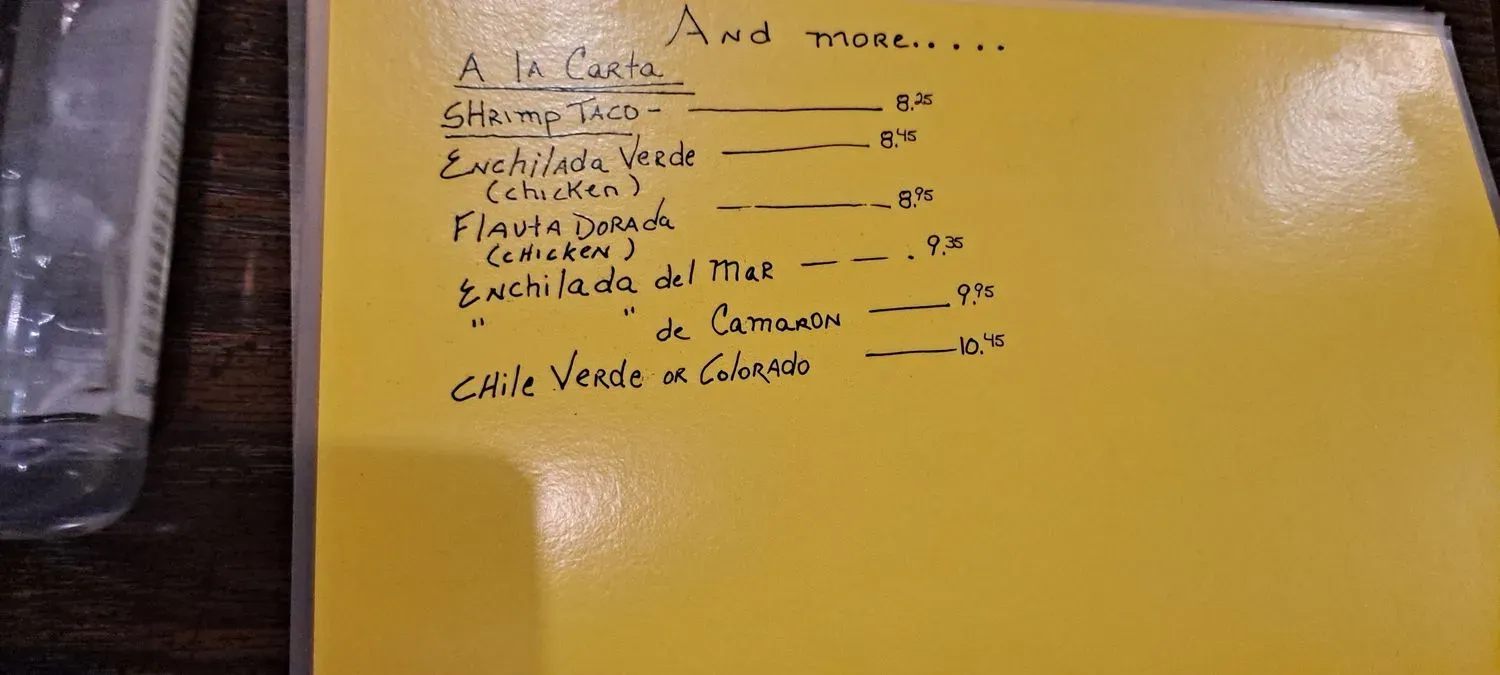 And more.....
A la Carta
Shrimp Taco - 8.25
Enchilada Verde 8.45
(chicken)
Flauta Dorada 8.95
(chicken)
Enchilada del Mar 9.35
" " de Camaron 9.95
Chile Verde or Colorado 10.45